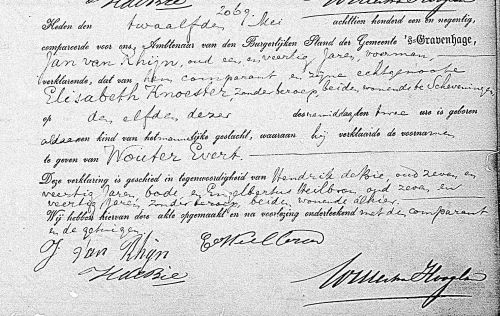 2069
Heden den twaalfden Mei achttien honderd een en negentig,
compareerde voor ons, Ambtenaar van den Burgerlijken Stand der Gemeente 's-Gravenhage,
Jan van Rhijn, oud een en veertig Jaren, voorman,
verklarende, dat van hem comparant en zijne echtgenoote
Elisabeth Knoester, zonder beroep, beiden wonende te Scheveningen
op den elfden dezer des namiddags ten twee ure is geboren
aldaar een kind van het mannelijke geslacht, waaraan hij verklaarde de voornamen
te geven van Wouter Evert.
Deze verklaring is geschied in tegenwoordigheid van Hendrik de Bie, oud zeven en
veertig Jaren, bode en Engelbertus Heilbron, oud zeven en
veertig Jaren, zonder beroep, beiden wonende alhier.
Wij hebben hiervan deze akte opgemaakt en na voorlezing onderteekend met de comparant
en de getuigen.
J van Rhijn
HdeBie